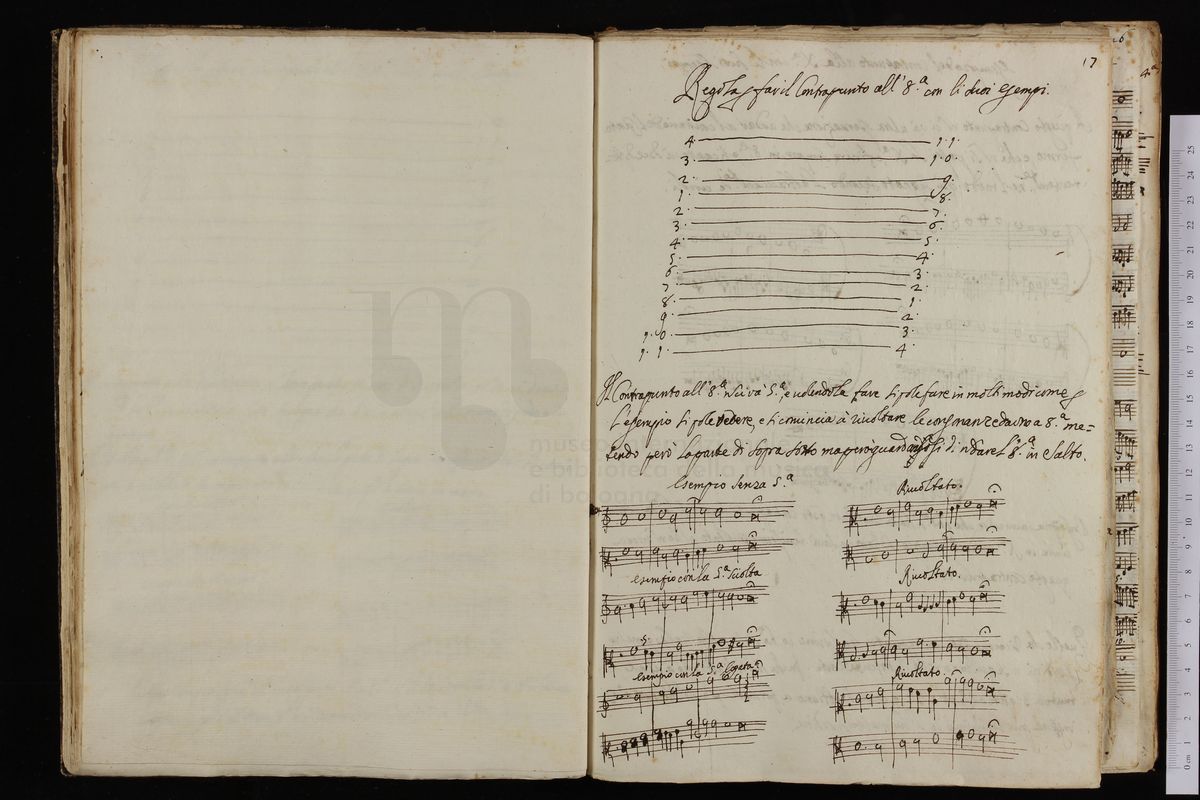 17
Regola p far il Contrapunto all' 8.ª con li suoi esempi.
4. 11.
3. 10.
2. 9.
1. 8.
2. 7.
3. 6.
4. 5.
5. 4.
6. 3.
7. 2.
8. 1.
9. 2.
10. 3.
11. 4.
Il Contrapunto all' 8.ª si và 5.ª, e volendola fare si pole fare in molti modi come p
l'esempio si pole vedere, e si comincia à rivoltare le consonanze da una 8.ª me=
tendo però la parte di sopra sotto ma però di andare l' 8.ª in salto.
museo internazionale
e biblioteca della musica
di bologna
Esempio senza 5.ª
Rivoltato.
Esempio con la 5.ª sciolta
Rivoltato.
5.
Esempio con la 5.ª legata
Rivoltato.
0 cm 1 2 3 4 5 6 7 8 9 10 11 12 13 14 15 16 17 18 19 20 21 22 23 24 25